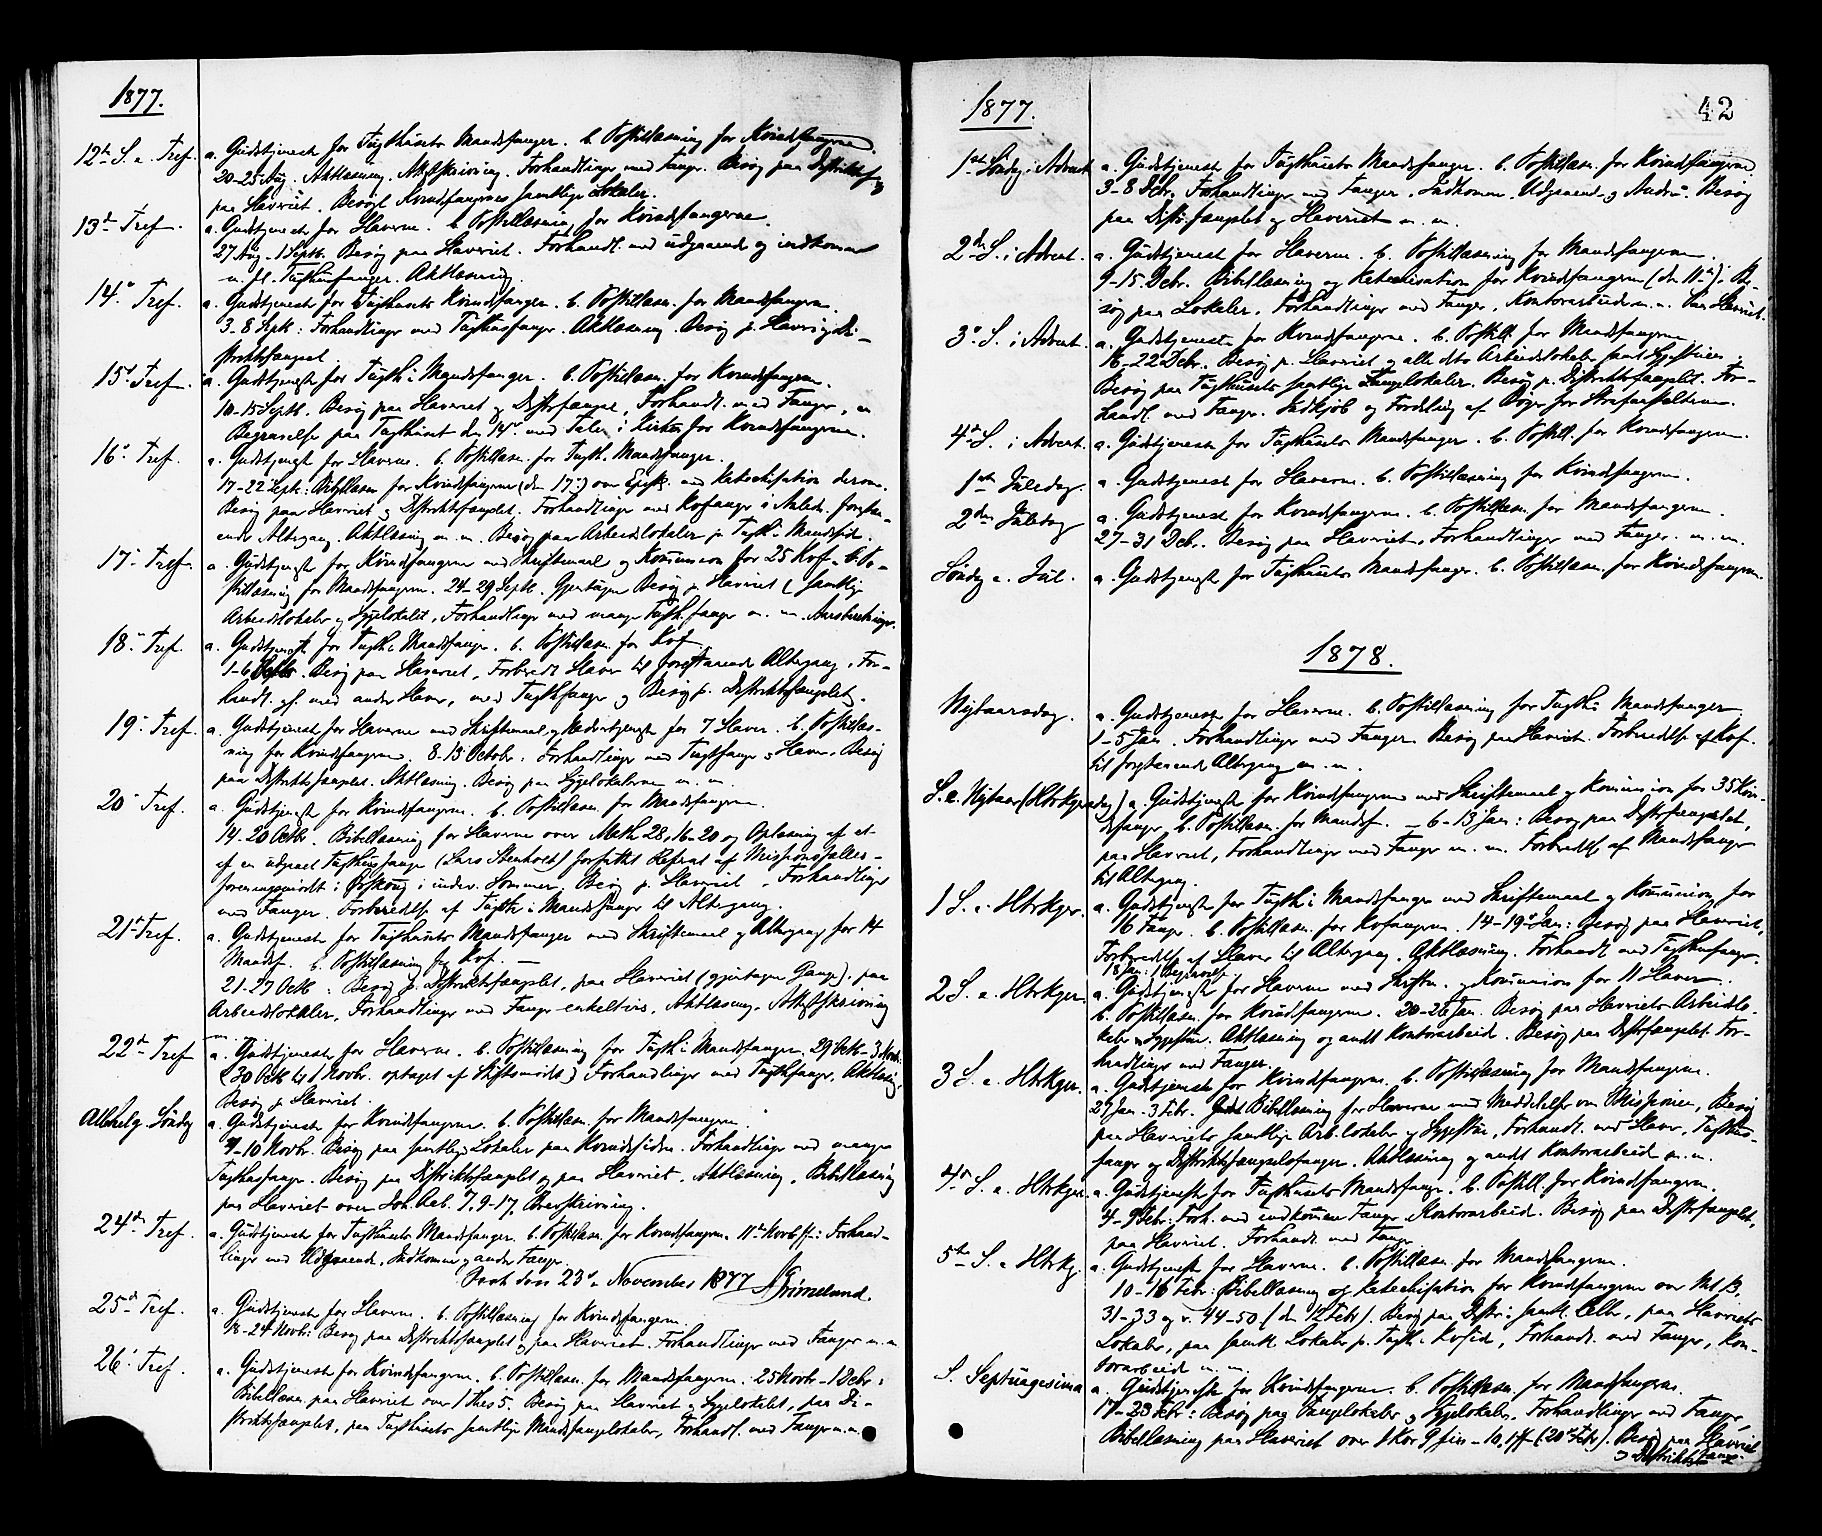 1877.
12te S. e. Tref. a. Gudstjeneste for Tugthusets Mandsfanger. b. Postillæsning for Kvindfangerne.
20-25 Aug. Aktlæsning. Attestskrivning. Forhandlinger med Fanger. Besøg paa Distriktsf.
paa Slaveriet. Besøgt Kvindfangernes samtlige Lokaler.
13de Tref. a. Gudstjeneste for Slaverne. b. Postillæsning for Kvindfangerne.
27 Aug.-1 Septb. Besøg paa Slaveriet. Forhandl. med udgaaende og indkomne
m. fl. Tugthusfanger. Aktlæsning.
14de Tref. a. Gudstjeneste for Tugthusets Kvindfanger. b. Postillæsn. for Mandsfangerne.
3-8 Sept: Forhandlinger med Tugthusfanger. Aktlæsning. Besøg p. Slaveri og Di-
striktsfængsel.
15de Tref. a. Gudstjeneste for Tugth: Mandsfanger. b. Postillæsn. for Kvindfangerne.
10-15 Septb. Besøg paa Slaveriet og Distrfængsl, Forhandl. med Fanger, en
Begravelse paa Tugthuset den 14de med Tale i Kirken for Kvindfangerne.
16de Tref. a. Gudstjeneste for Slaverne. b. Postillæsn. for Tugth. Mandsfanger.
17-22 Sept: Bibellæsn for Kvindfangerne (den 17de) over Epist. med Katechisation derom.
Besøg paa Slaveriet og Distriktsfængslet. Forhandlinger med Kvfanger i Anledn. forestaa-
ende Altergang. Aktlæsning m. m. Besøg paa Arbeidslokaler p. Tugth: Mandsside.
17de Tref. a. Gudstjeneste for Kvindfangerne med Skriftemaal og Kommunion for 25 Kvf. b. Po-
stillæsning for Mandsfangerne. 24-29 Septb. Gjentagne Besøg p. Slaveriet (samtlige
Arbeidslokaler og Sygelokalet, Forhandlinger med mange Tugth.fanger m. m. Aarsberetninger.
18de Tref. a. Gudstjeneste for Tugth: Mandsfanger. b. Postillæsn. for Kvf.
1-6 Besøg paa Slaveriet, Forberedt Slaver til forestaaende Altergang, For-
handl. gj. med andre Slaver, med Tugthfanger og Besøg p. Distriktsfængslet.
19de Tref. a. Gudstjeneste for Slaverne med Skriftemaal og Nadvertjeneste for 7 Slaver. b. Postillæs-
ning for Kvindfangerne. 8-13 Octobr. Forhandlinger med Tugthfanger og Slaver. Besøg
paa Distriktsfængslet. Aktlæsning. Besøg paa Sygelokalerne m. m.
20de Tref. a. Gudstjeneste for Kvindfangerne. b. Postillæsn. for Mandsfangerne.
14-20 Octbr. Bibellæsning for Slaverne over Math 28,16-20 og Oplæsning af et
af en udgaaet Tugthusfange (Lars Stenholt) forfattet Referat af Missionsfælles-
foreningsmødet i Ørskoug i inder. Sommer. Besøg p. Slaveriet. Forhandlinger
med Fanger. Forberedelse af Tugth: Mandsfanger til Altergang.
21de Tref. a. Gudstjeneste for Tugthusets Mandsfanger med Skriftemaal og Altergang for 14
Mandsf. b. Postillæsning for Kvf. —
21-27 Octb: Besøg p. Distriktsfængslet, paa Slaveriet (gjentagne Gange), paa
Arbeidslokaler, Forhandlinger med Fanger enkeltvis, Aktlæsning, Attestskrivning
m.
22de Tref a. Gudstjeneste for Slaverne. b. Postillæsning for Tugth: Mandsfanger. 29 Octb-3 Novb.
(30 Octb til 1 Novbr. optaget af Stiftsmødet) Forhandlinger med Tugthfanger, Aktlæsning,
Besøg p. Slaveriet.
Allehelg. Søndag a. Gudstjeneste for Kvindfangerne. b. Postillæsn. for Mandsfangerne.
4-10 Novbr. Besøg paa samtlige Lokaler paa Kvindesiden. Forhandlinger med mange
Tugthusfanger. Besøg paa Distriktsfængslet og paa Slaveriet. Aktlæsning, Bibellæsning
paa Slaveriet over Joh. Aab. 7, 9-17. Brevskrivning.
24de Tref. a. Gudstjeneste for Tugthusets Mandsfanger. b. Postillæsn. for Kvindfangerne. 11te Novb ff: Forhand-
linger med Udgaaende, Indkomne og andre Fanger.
Seet den 23de November 1877 Grimelund.
25de Tref. a. Gudstjeneste for Slaverne. b. Postillæsning for Kvindfangerne.
18-24 Novbr: Besøg paa Distriktsfængslet og paa Slaveriet. Forhandlinger med Fanger m. m
26de Tref. a. Gudstjeneste for Kvindfangerne. b. Postillæsn. for Mandsfangerne. 25 Novbr-1 Decbr:
Bibellæsn. paa Slaveriet over 1 Thes 5. Besøg paa Slaveriet og Sygelokalet, paa Di-
striktsfængslet, paa Tugthusets samtlige Mandsfangelokaler, Forhandl. med Fanger m. m.
1877. 42
1ste Søndag i Advent a. Gudstjeneste for Tugthusets Mandsfanger. b. Postillæsn. for Kvindfangerne
3-8 Dcbr. Forhandlinger med Fanger, Indkomne, Udgaaend. og Andre. Besøg
paa Distr.fængslet og Slaveriet m. m.
2den S. i Advent. a. Gudstjeneste for Slaverne. b. Postillæsning for Mandsfangerne.
9-15 Dcbr. Bibellæsning og Katechisation for Kvindfangerne (den 11te). Be-
søg paa Lokaler, Forhandlinger med Fanger, Kontorarbeide m. m. Slaveriet.
3de S. i Advent. a. Gudstjeneste for Kvindfangerne. b. Postill. for Mandsfangerne
16-22 Dcbr. Besøg p. Slaveriet og alle dets Arbeidslokaler samt Sygestuen.
Besøg paa Tugthusets samtlige Fangelokaler. Besøg p. Distriktsfængslet. For-
handl. med Fanger. Indkjøb og Fordeling af Bøger for Strafanstalterne.
4de S. i Advent. a. Gudstjeneste for Tugthusets Mandsfanger. b. Postill. for Kvindfangerne.
1ste Juledag. a. Gudstjeneste for Slaverne. b. Postillæsning for Kvindfangerne.
2den Juledag a. Gudstjeneste for Kvindfangerne. b. Postillæsn. for Mandsfangerne.
27-31 Dcb. Besøg paa Slaveriet, Forhandlinger med Fanger. m. m.
Søndag e. Jul. a. Gudstjeneste for Tugthusets Mandsfanger. b. Postillæsn. for Kvindfangerne.
1878.
Nytaarsdag. a. Gudstjeneste for Slaverne. b. Postillæsning for Tugth: Mandsfanger
1-5 Jan. Forhandlinger med Fanger. Besøg paa Slaveriet. Forberedelse af Kvf.
til forestaaende Altergang m. m.
S. e. Nytaar (Htrkgersdag) a. Gudstjeneste for Kvindfangerne med Skriftemaal og Kommunion for 35 Kvin-
defanger. b. Postillæsn. for Mandsf. — 6-13 Jan: Besøg paa Distrfængslet,
paa Slaveriet, Forhandlinger med Fanger m. m. Forberedelse af Mandsfanger
til Altergang.
1 S. e. Htrkger. a. Gudstjeneste for Tugth: Mandsfanger med Skriftemaal og Kommunion for
16 Fanger. b. Postillæsn. for Kvfangerne. 14-19de Jan: Besøg paa Slaveriet,
Forberedelse af Slaver til Altergang. Aktlæsning. Forhandl. med Tugthusfanger.
18 Jan: 1 Begravelse.
2 S. e. Htrkger. a. Gudstjeneste for Slaverne med Skriftem. og Kommunion for 11 Slaver.
b. Postillæsn. for Kvindfangerne. 20-26 Jan. Besøg paa Slaveriets Arbeidslo-
kaler og Sygestue. Aktlæsning og andt Kontorarbeid. Besøg paa Distrfængslet. For-
handlinger med Fanger.
3 S. e. Htrkger. a. Gudstjeneste for Kvindfangerne. b. Postillæsning for Mandsfangerne.
27 Jan-3 Febr. Bibellæsning for Slaverne med Meddelelse om Missionen, Besøg
paa Slaveriets samtlige Arb.lokaler og Sygestue, Forhandl. med Slaver, Tugthus-
fanger og Distriktsfængselsfanger. Aktlæsning og andt Kontorarbeid m. m.
4de S. e. Htrkger. a. Gudstjeneste for Tugthusets Mandsfanger. b. Postill. for Kvindfangerne.
4-9 Febr: Forh. med indkomne Fanger. Kontorarbeid. Besøg paa Distrfængslet,
paa Slaveriet. Forhandl. med Fanger.
5te S. e. Htrkg. a. Gudstjeneste for Slaverne. b. Postillæsn. for Mandsfangerne.
10-16 Febr: Bibellæsning og Katechisation for Kvindfangerne over Mt 13,
31-33 og v. 44-50 (den 12 Febr). Besøg paa Distr: samtl. Celler, paa Slaveriets
Lokaler, paa samtl Lokaler p. Tugth. Kvside, Forhandl. med Fanger, Kon-
torarbeide m. m.
S. Septuagesima a. Gudstjeneste for Kvindfangerne. b. Postillæsn. for Mandsfangerne.
17-23 Febr: Besøg paa Fangelokaler og Sygelokaler. Forhandlinger med Fanger,
Bibellæsning paa Slaveriet over 1 Kor 9 fin - 10, 1 ff - (20de Febr). Besøg paa Slaveriet
og Distriktsfængs.